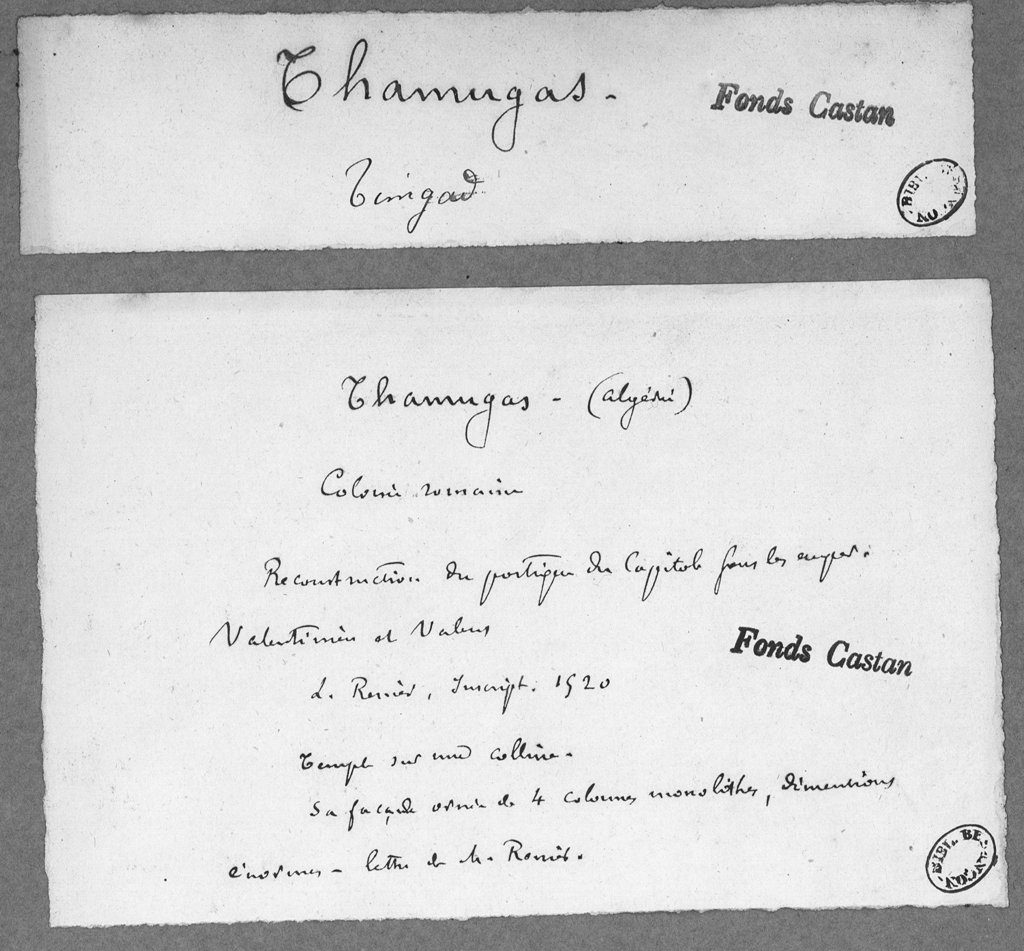 Thamugas -
Fonds Castan
Timgad
Thamugas - (algérie)
Colonie romaine
Reconstruction du portique du Capitole sous les emper.
Valentinien et Valens
Fonds Castan
L. Renier, Inscript. 1520
Temple sur une colline.
Sa façade ornée de 4 colonnes monolithes, dimentions
énormes - lettre de M. Renier.